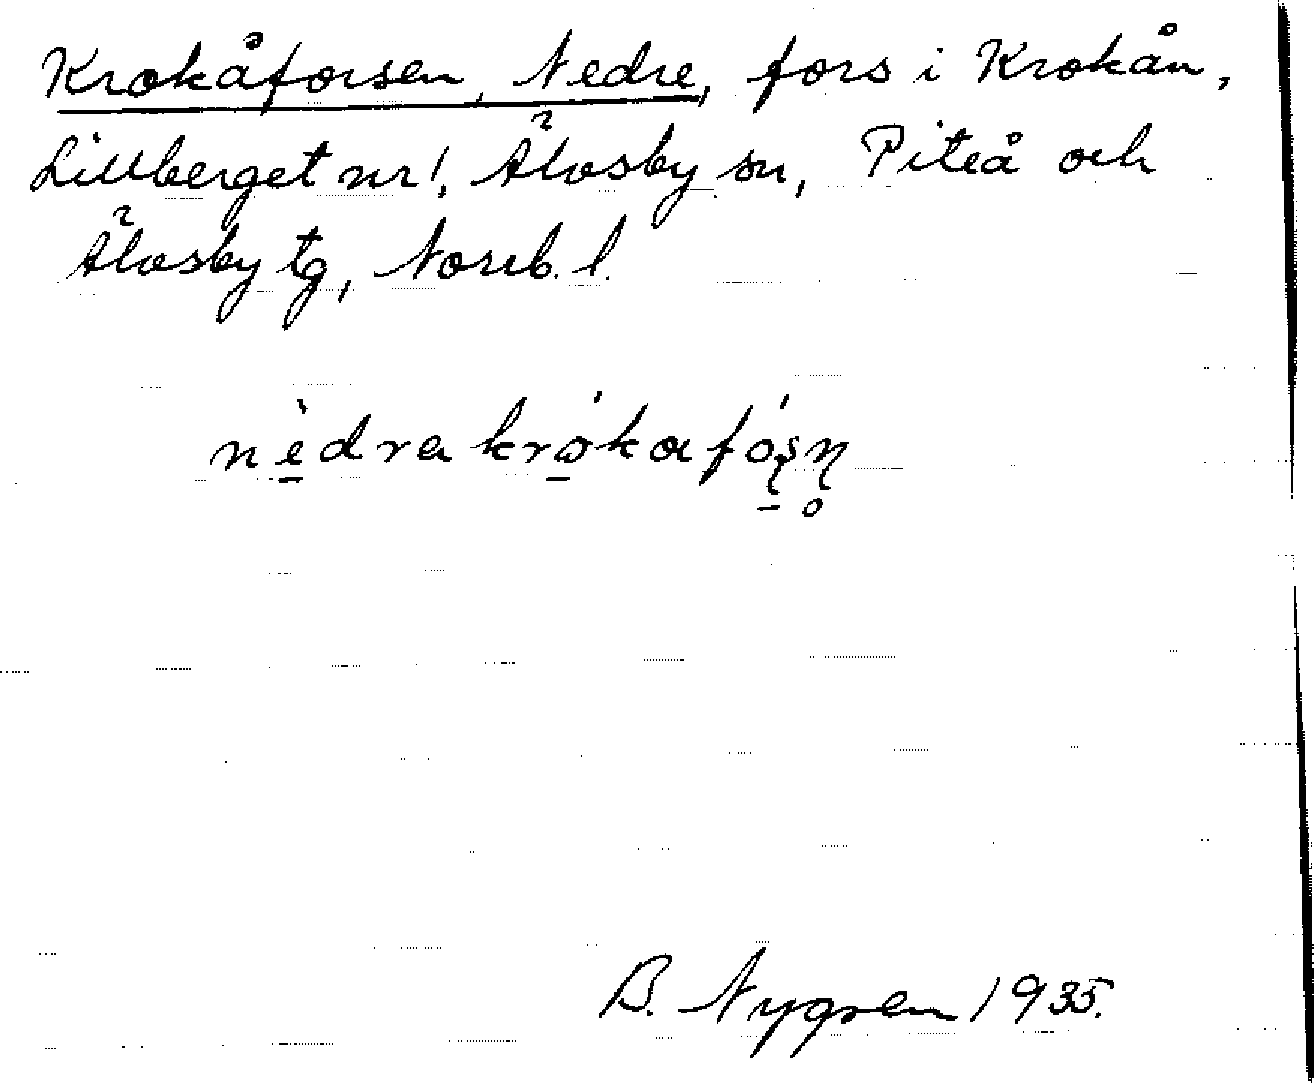 Krokåforsen, Nedre, fors i Krokån,
Lillberget nr 1, Älvsby sn, Piteå och
Älvsby tg, Norrb. l.
nèdra krókafós̠n̥
B. Nygren 1935.